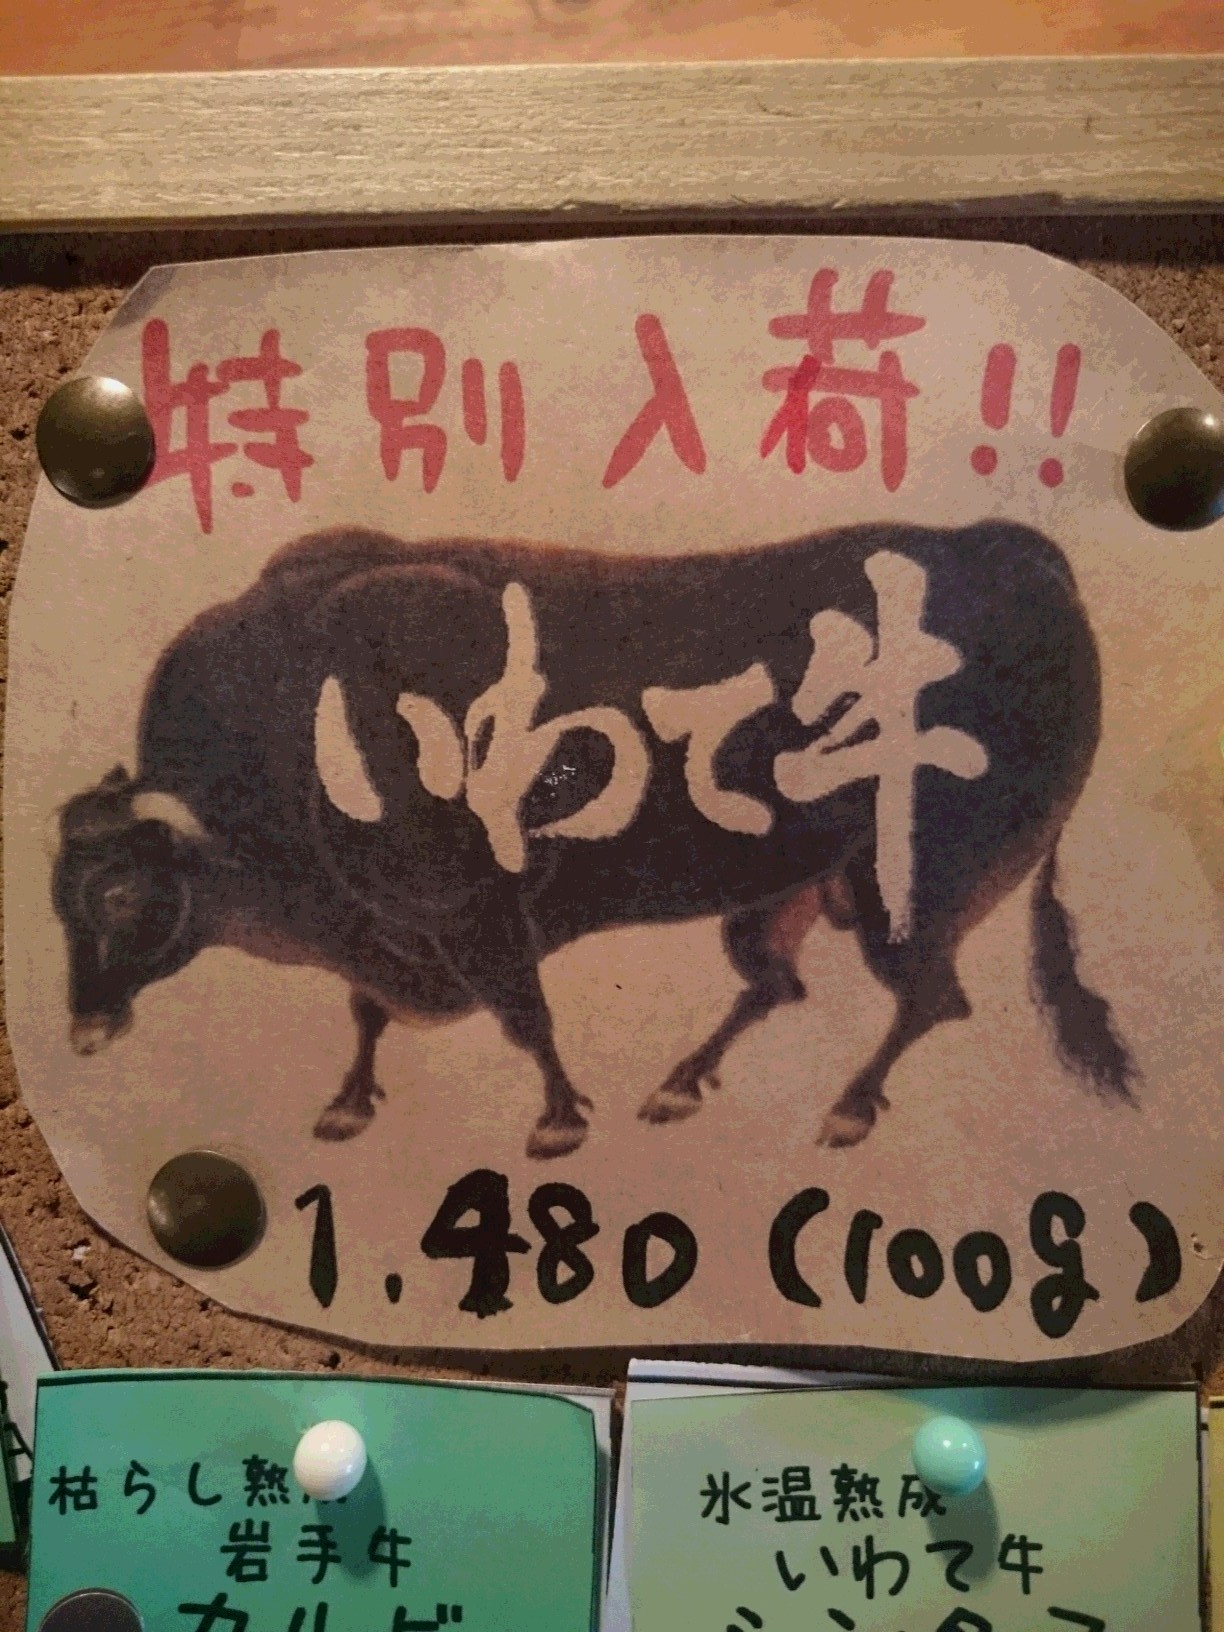 特別入荷!!
いわて牛
1.480 (100g)
枯らし熟
岩手牛
カルビ
氷温熟成
いわて牛